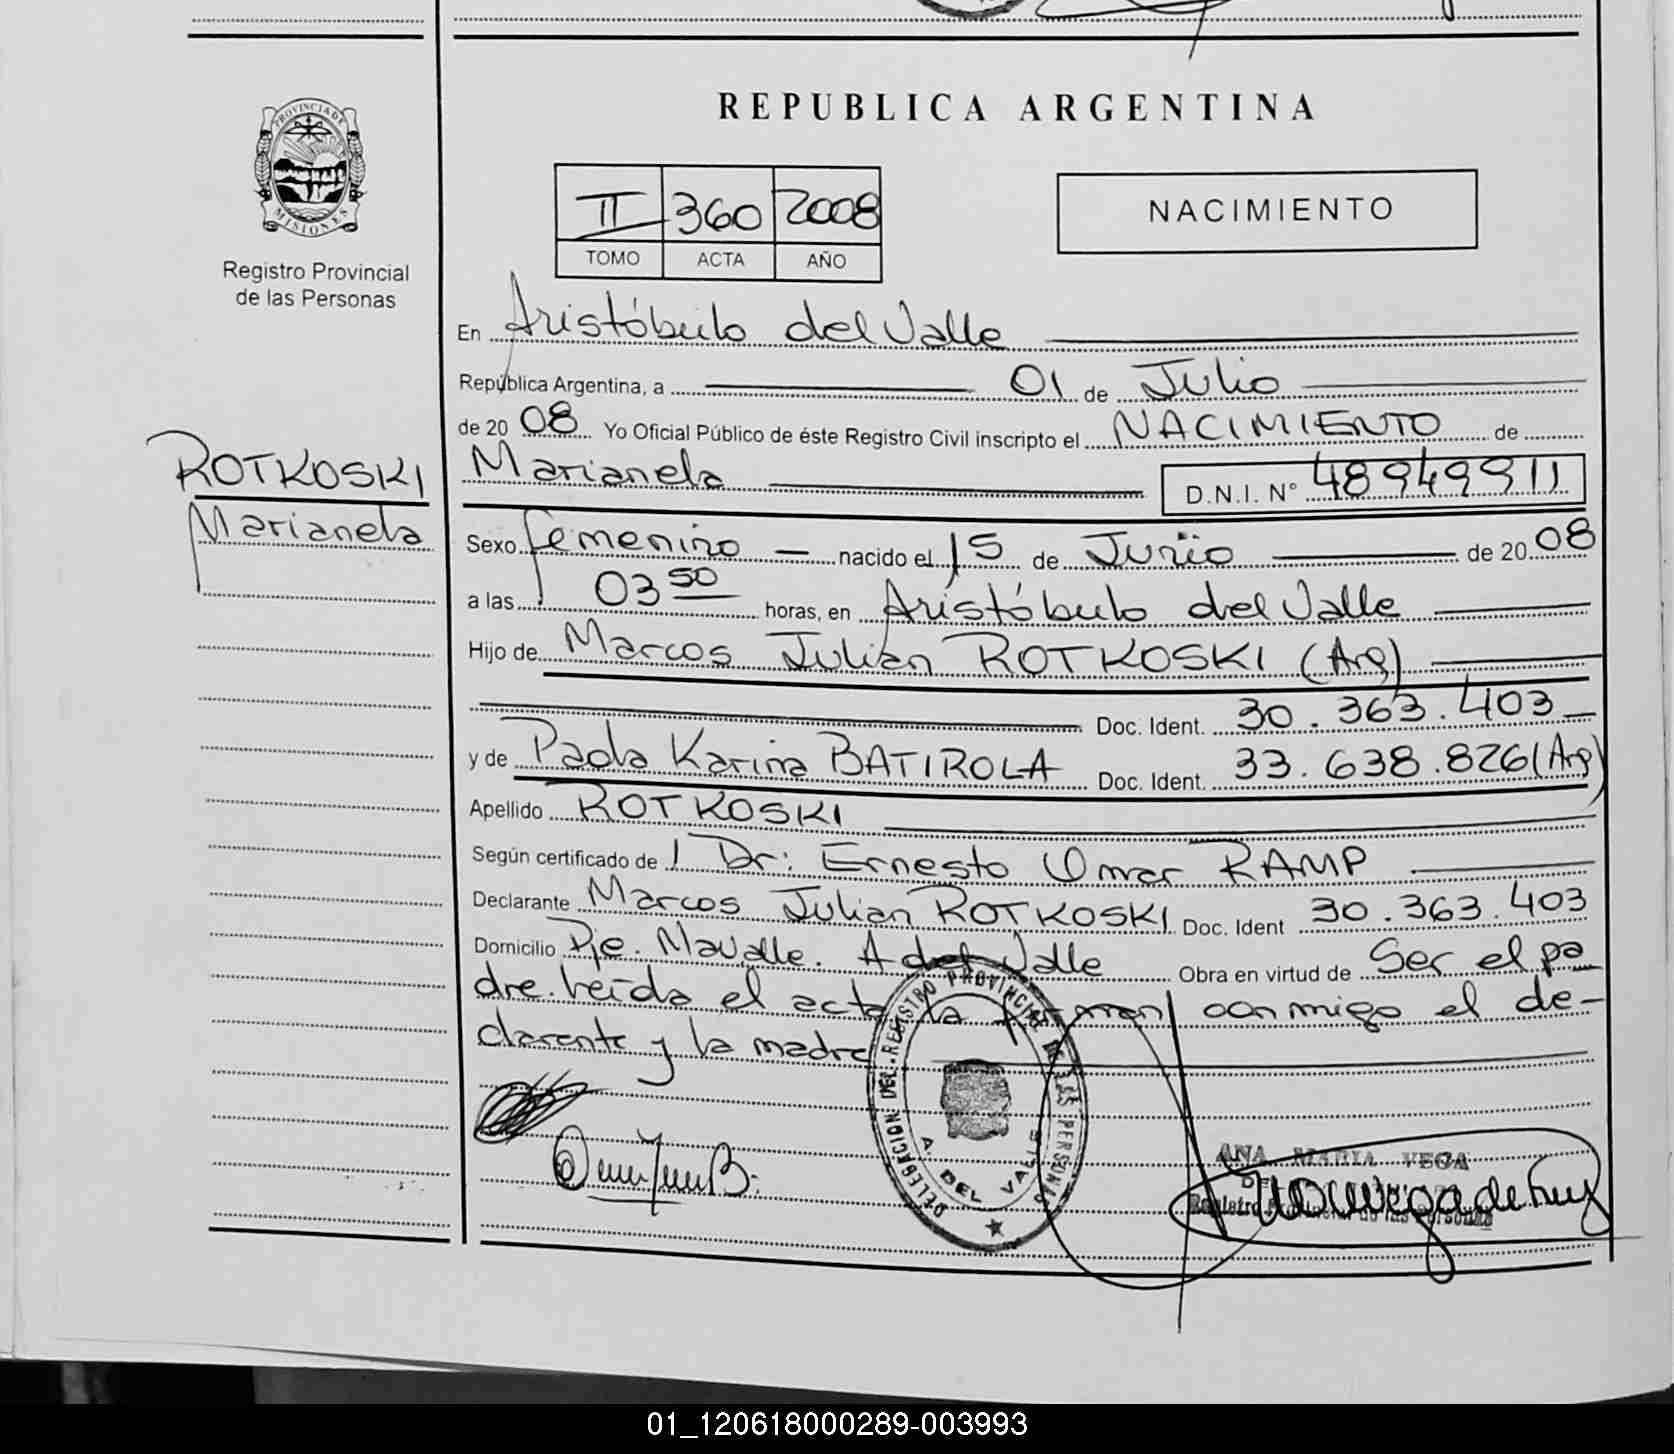 PROVINCIA DE
MISIONES
Registro Provincial
de las Personas
REPUBLICA ARGENTINA
II 360 2008
TOMO ACTA AÑO
NACIMIENTO
En Aristóbulo del Valle
República Argentina, a 01 de Julio
de 2008 Yo Oficial Público de éste Registro Civil inscripto el NACIMIENTO de
ROTKOSKI
Marianela
Marianela D.N.I. N° 48949911
Sexo femenino nacido el 15 de Junio de 2008
a las 03 50 horas, en Aristóbulo del Valle
Hijo de Marcos Julian ROTKOSKI (Arg)
Doc. Ident. 30.363.403
y de Paola Karina BATIROLA Doc. Ident. 33.638.826 (Arg)
Apellido ROTKOSKI
Según certificado de Dr: Ernesto Omar RAMP
Declarante Marcos Julian ROTKOSKI Doc. Ident 30.363.403
Domicilio Pje. Mavalle. A del Valle Obra en virtud de Ser el pa
dre. leída el acta la firman conmigo el de-
clarante y la madre
DELEGACION DEL REGISTRO PROVINCIAL DE LAS PERSONAS
A. DEL VALLE
ANA MARIA VEGA
Registro Provincial de las Personas
01_120618000289-003993